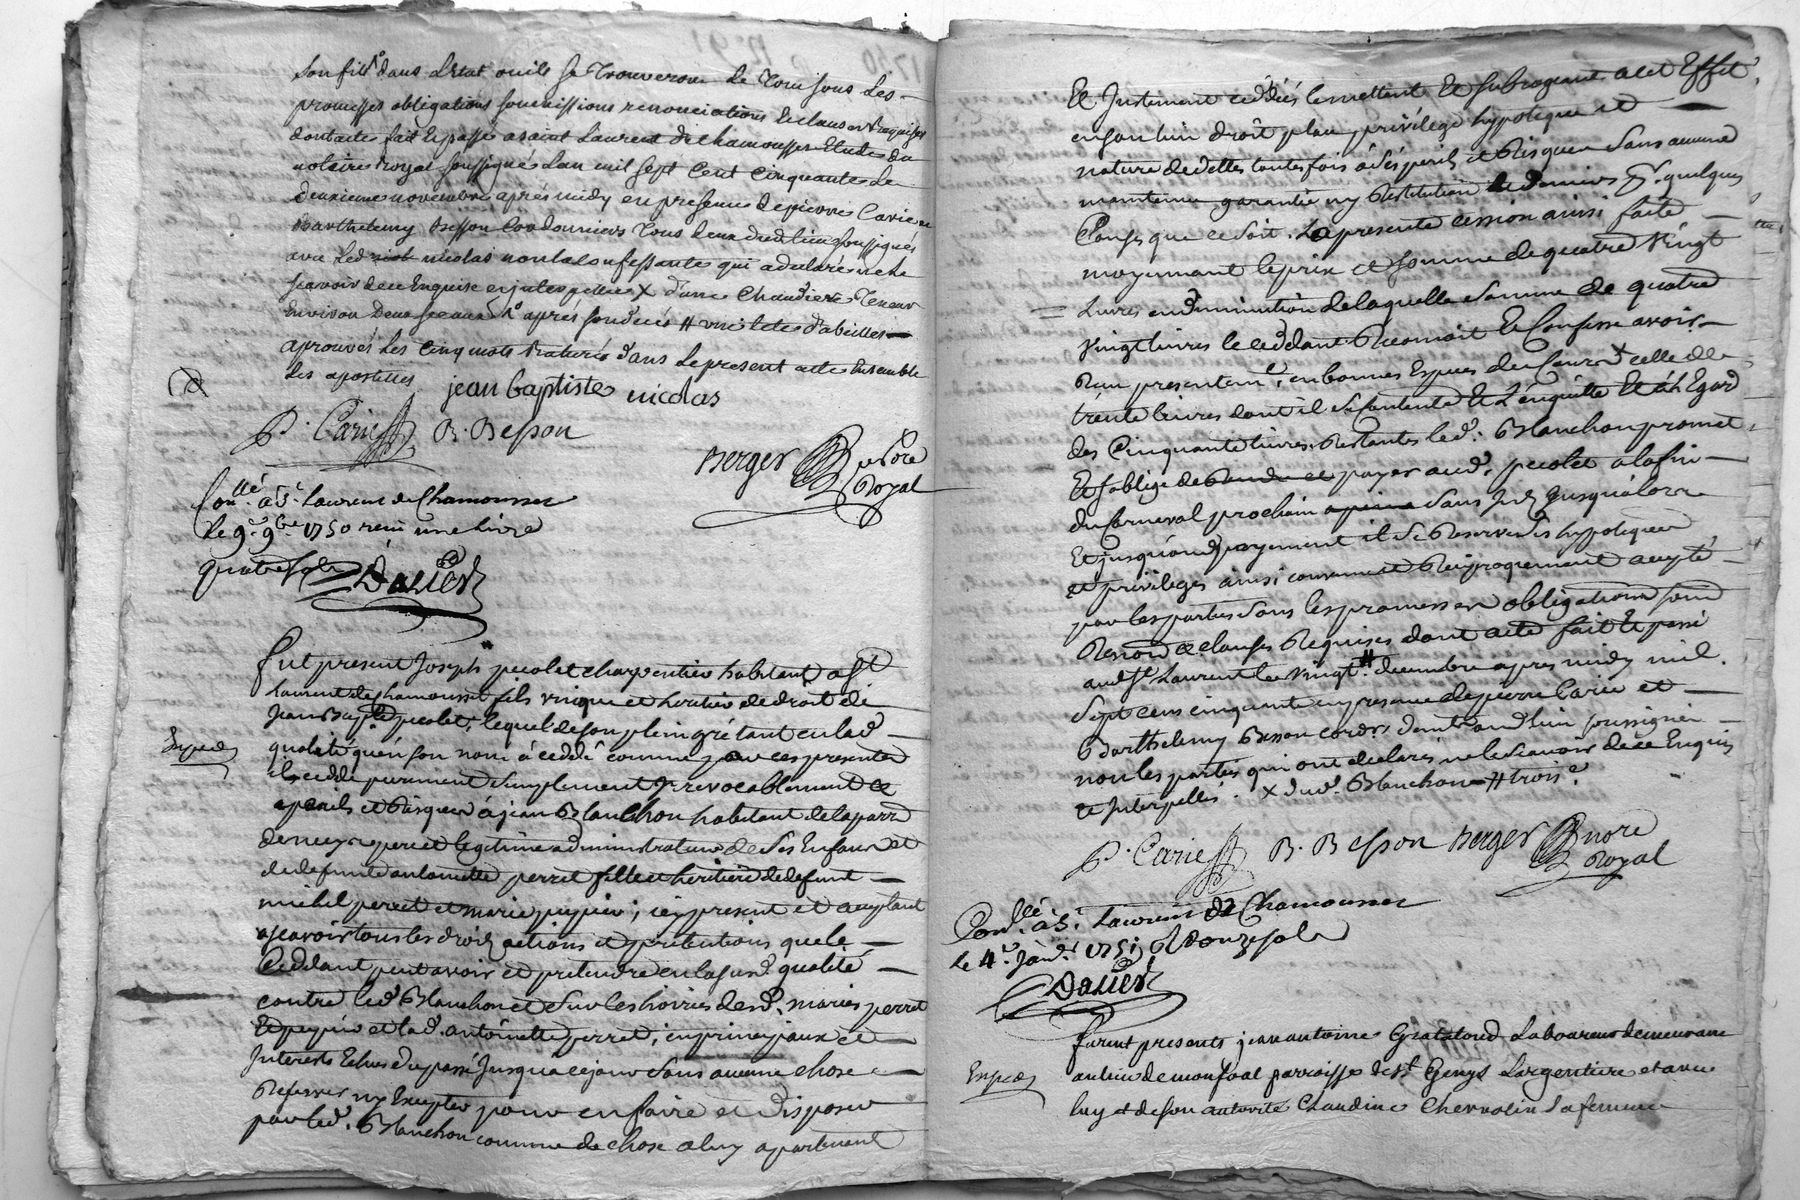 son fils dans l'Etat ou ils se trouveront le tout sous les
promesses obligations soumissions renonciations & clauses requises
dont acte fait & passé a saint Laurent de chamousset Etude du
notaire Royal soussigné L'an mil sept cent cinquante le
deuxieme novembre aprés midy en presence de pierre Carie &
Barthelemy Besson Cordonniers tous deux dud lieu soussignés
avec led nicolas non la confessante qui a declaré ne le
scavoir de ce Enquise et interpellée X d'une Chaudiere tenant
Environ Deux seaux aprés son decés # une
aprouvés les cinq mots raturés dans le present acte Ensemble
les apostilles
jean baptiste nicolas
P. Carie B. Besson
Berger no.re Royal
Con.llé a S.t Laurent de Chamousset
Le 9.e 9.bre 1750 reçu une livre
quatre sols
Dalier
Fut present Joseph pecolet charpentier habitant a S.t
Laurent de chamousset fils unique et heritier de droit de
Jean Bapt.e pecolet, lequel de son plein gré tant en lad.
Exped.
qualité qu'en son nom à ceddé comme par ces presentes
il cedde purement simplement Irrevocablement &
a perils et Risques à jean Blanchon habitant de la parr.
de neyr pere et legitime administrateur de ses Enfans et
de defunte antoinette perret fille et heritiere de defunt
michel perret et marie pupier; icy present et acceptant
a scavoir tous les droits actions et pretentions que le
Ceddant peut avoir et pretendre en lasusd. qualité
contre led. Blanchon et sur les hoiries desd. maries perret
Et pupier et lad. antoinette perret, en principaux et
Interets Echus du passé jusqua ce jour sans aucune chose
Reserver ny Excepter pour en faire et disposer
par led. Blanchon comme de chose a luy apartenant
Et Justement ceddés le mettant Et subrogeant a cet Effet
en son lieu droit place privilége hypoteque et
nature de dettes toutes fois à ses perils et Risques sans aucune
maintenue garantie ny Restitution de deniers p.r quelques
Causes que ce soit. La presente cession ainsi faite
moyennant le prix et somme de quatre Vingt
Livres en diminution de laquelle somme de quatre
vingt livres le ceddant Reconnoit Et Confesse avoir
Reçu presentem.t, en bonnes Especes de Cours X celle de
trente livres dont il se contente Et L'en quitte Et à l'Egard
des Cinquante livres Restantes led. Blanchon promet
Et s'oblige de payer aud. pecolet a la fin
du Carneval prochain sans Int. Jusqu'alors
Et jusqu'au payement il se Reserve ses hypoteques
et privileges ainsi convenu et Reciproquement accepté
par les parties sous les promesses obligations soum.
Renonc. & clauses Requises dont acte fait & passé
aud S.t Laurent le Vingt # decembre apres midy mil
sept cens cinquante en presence de pierre Carie et
Barthelemy Besson cord.rs dem.t aud lieu soussignés
non les parties qui ont declarés ne le scavoir de ce Enquis
& Interpellés. X dud. Blanchon # trois.e
P. Carie B. Besson Berger no.re Royal
Con.llé a S.t Laurent de Chamousset
Le 4.e Janv.r 1751 R douze sols
Dalier
Furent presents jean antoine Grataloud Laboureur demeurant
Exped.
au lieu de monfoal parroisse de S.t Genys Largentiere et avec
luy et de son autorité Claudine Chervolin sa femme